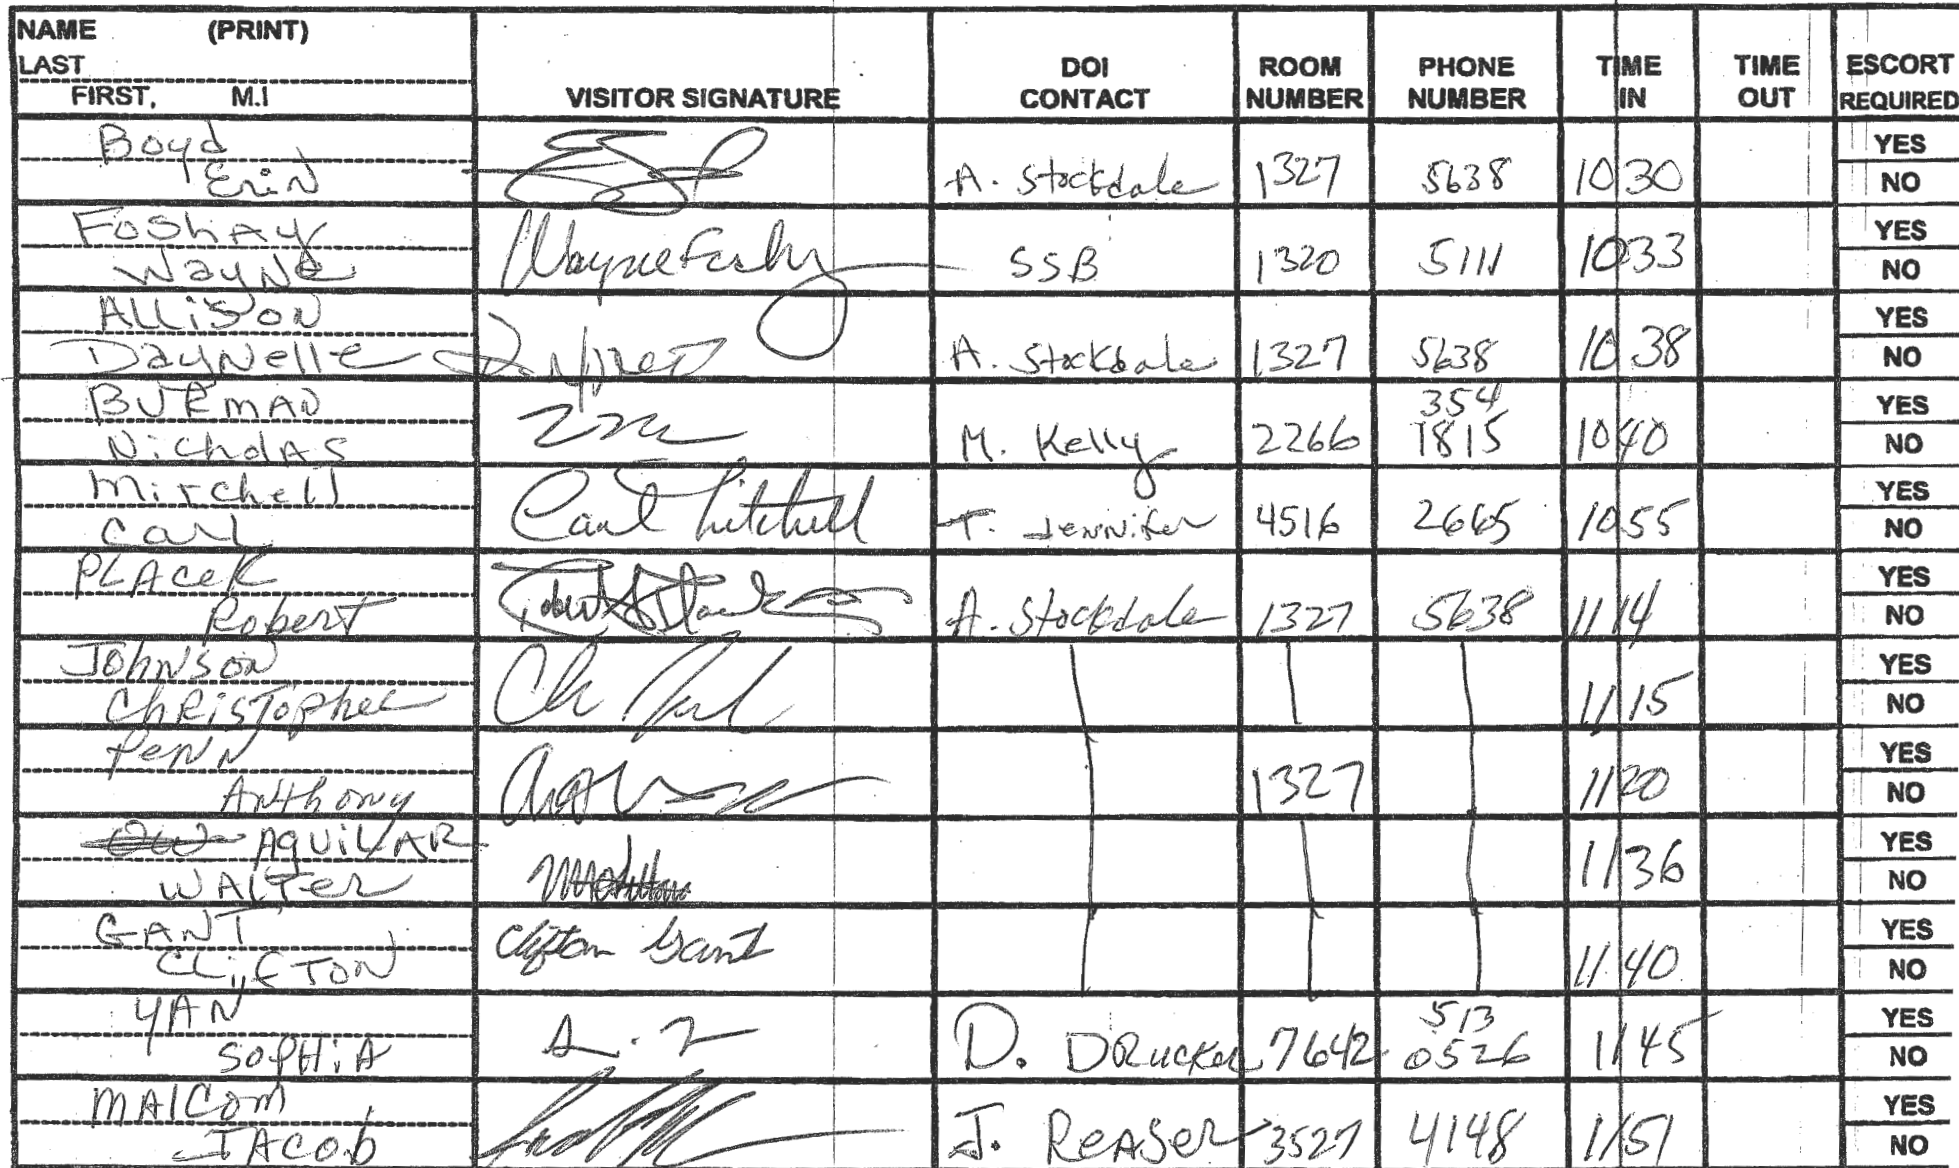 NAME (PRINT)
LAST
FIRST, M.I
VISITOR SIGNATURE
DOI CONTACT
ROOM NUMBER
PHONE NUMBER
TIME IN
TIME OUT
ESCORT REQUIRED
Boyd
Erin
A. Stockdale 1327 5638 1030 YES NO
Foshay
Wayne
Wayne Foshay SSB 1320 5111 1033 YES NO
Allison
Daynelle
A. Stockdale 1327 5638 1038 YES NO
Burman
Nicholas
M. Kelly 2266 354 1815 1040 YES NO
Mitchell
Carl
Carl Mitchell T. Jennifer 4516 2665 1055 YES NO
Placek
Robert
A. Stockdale 1327 5638 1114 YES NO
Johnson
Christopher
1115 YES NO
Penn
Anthony
1327 1120 YES NO
Aguilar
Walter
1136 YES NO
Gant
Clifton
Clifton Gant 1140 YES NO
Yan
Sophia
D. Drucker 7642 513 0526 1145 YES NO
Malcom
Jacob
J. Reaser 3527 4148 1151 YES NO